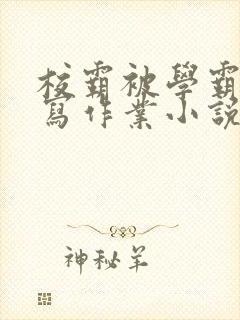 校霸被學霸
寫作業小説
神秘羊